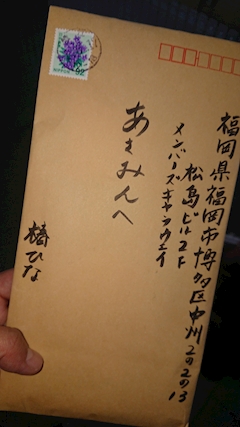 福岡県福岡市博多区中州2の2の13
松島ビル2F
メンバーズギャラウェイ
あきみんへ
椿ひな